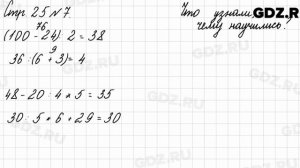 Стр. 25 № 7
Что узнали,
чему научились?
GDZ.R
76
(100 - 24) : 2 = 38
9
36 : (6 + 3) = 4
48 - 20 : 4 * 5 = 35
30 : 5 * 6 + 29 = 30
GDZ.R